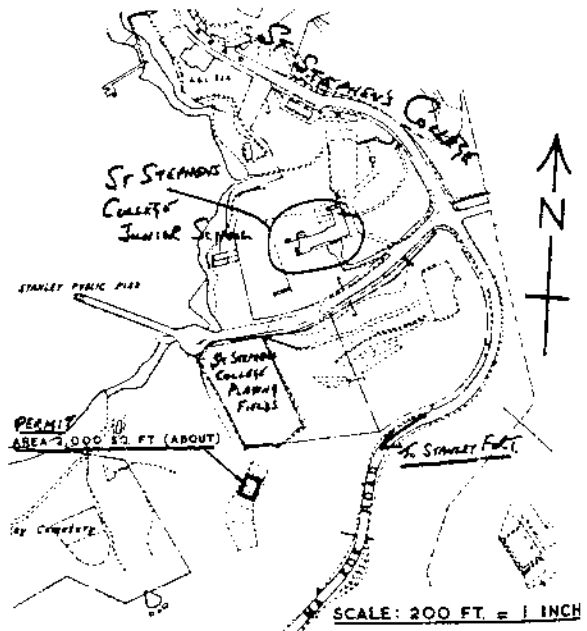 ST STEPHEN'S COLLEGE
ST STEPHENS
COLLEGE
JUNIOR SCHOOL
N
STANLEY PUBLIC PIER
ST STEPHENS
COLLEGE
PLAYING
FIELDS
PERMIT
AREA 2,000 SQ. FT (ABOUT)
To STANLEY FORT.
Cemetery
ROAD
SCALE: 200 FT. = 1 INCH